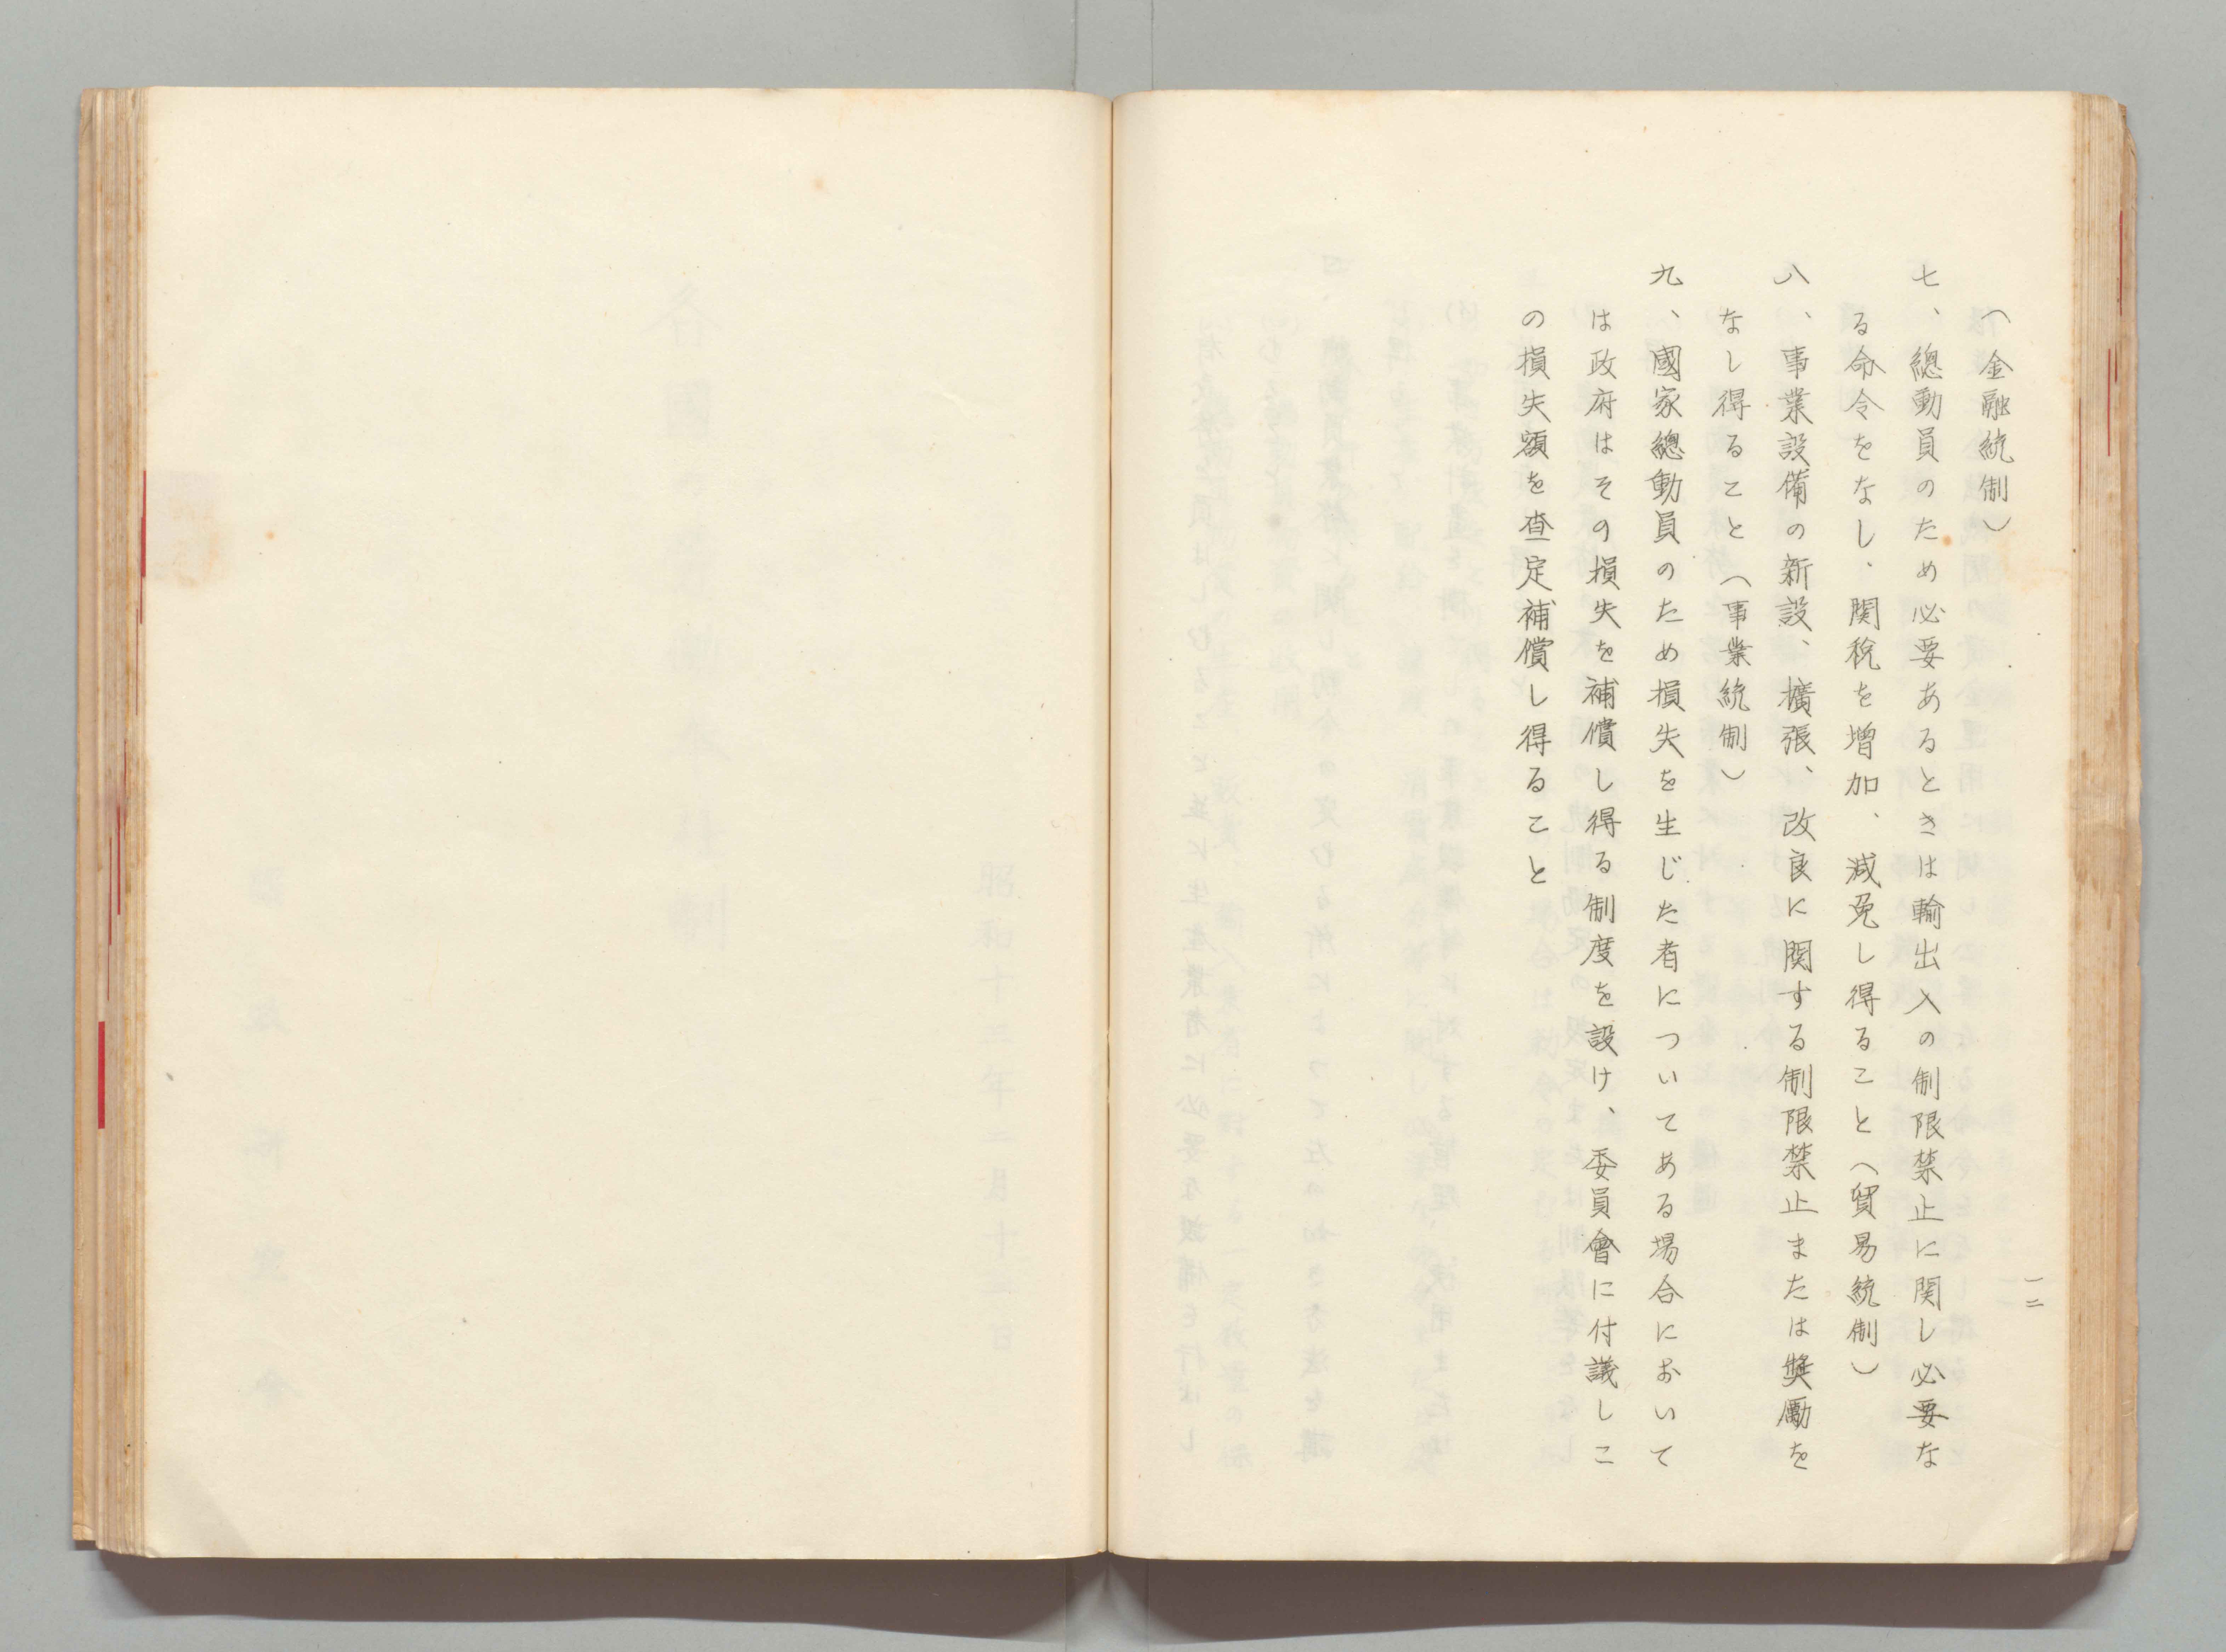 一二
(金融統制)
七、總動員のため必要あるときは輸出入の制限禁止に関し必要な
る命令をなし、関税を増加、減免し得ること(貿易統制)
八、事業設備の新設、擴張、改良に関する制限禁止または奬勵を
なし得ること(事業統制)
九、國家總動員のため損失を生じた者についてある場合において
は政府はその損失を補償し得る制度を設け、委員會に付議しこ
の損失額を査定補償し得ること
昭和十三年二月十二日